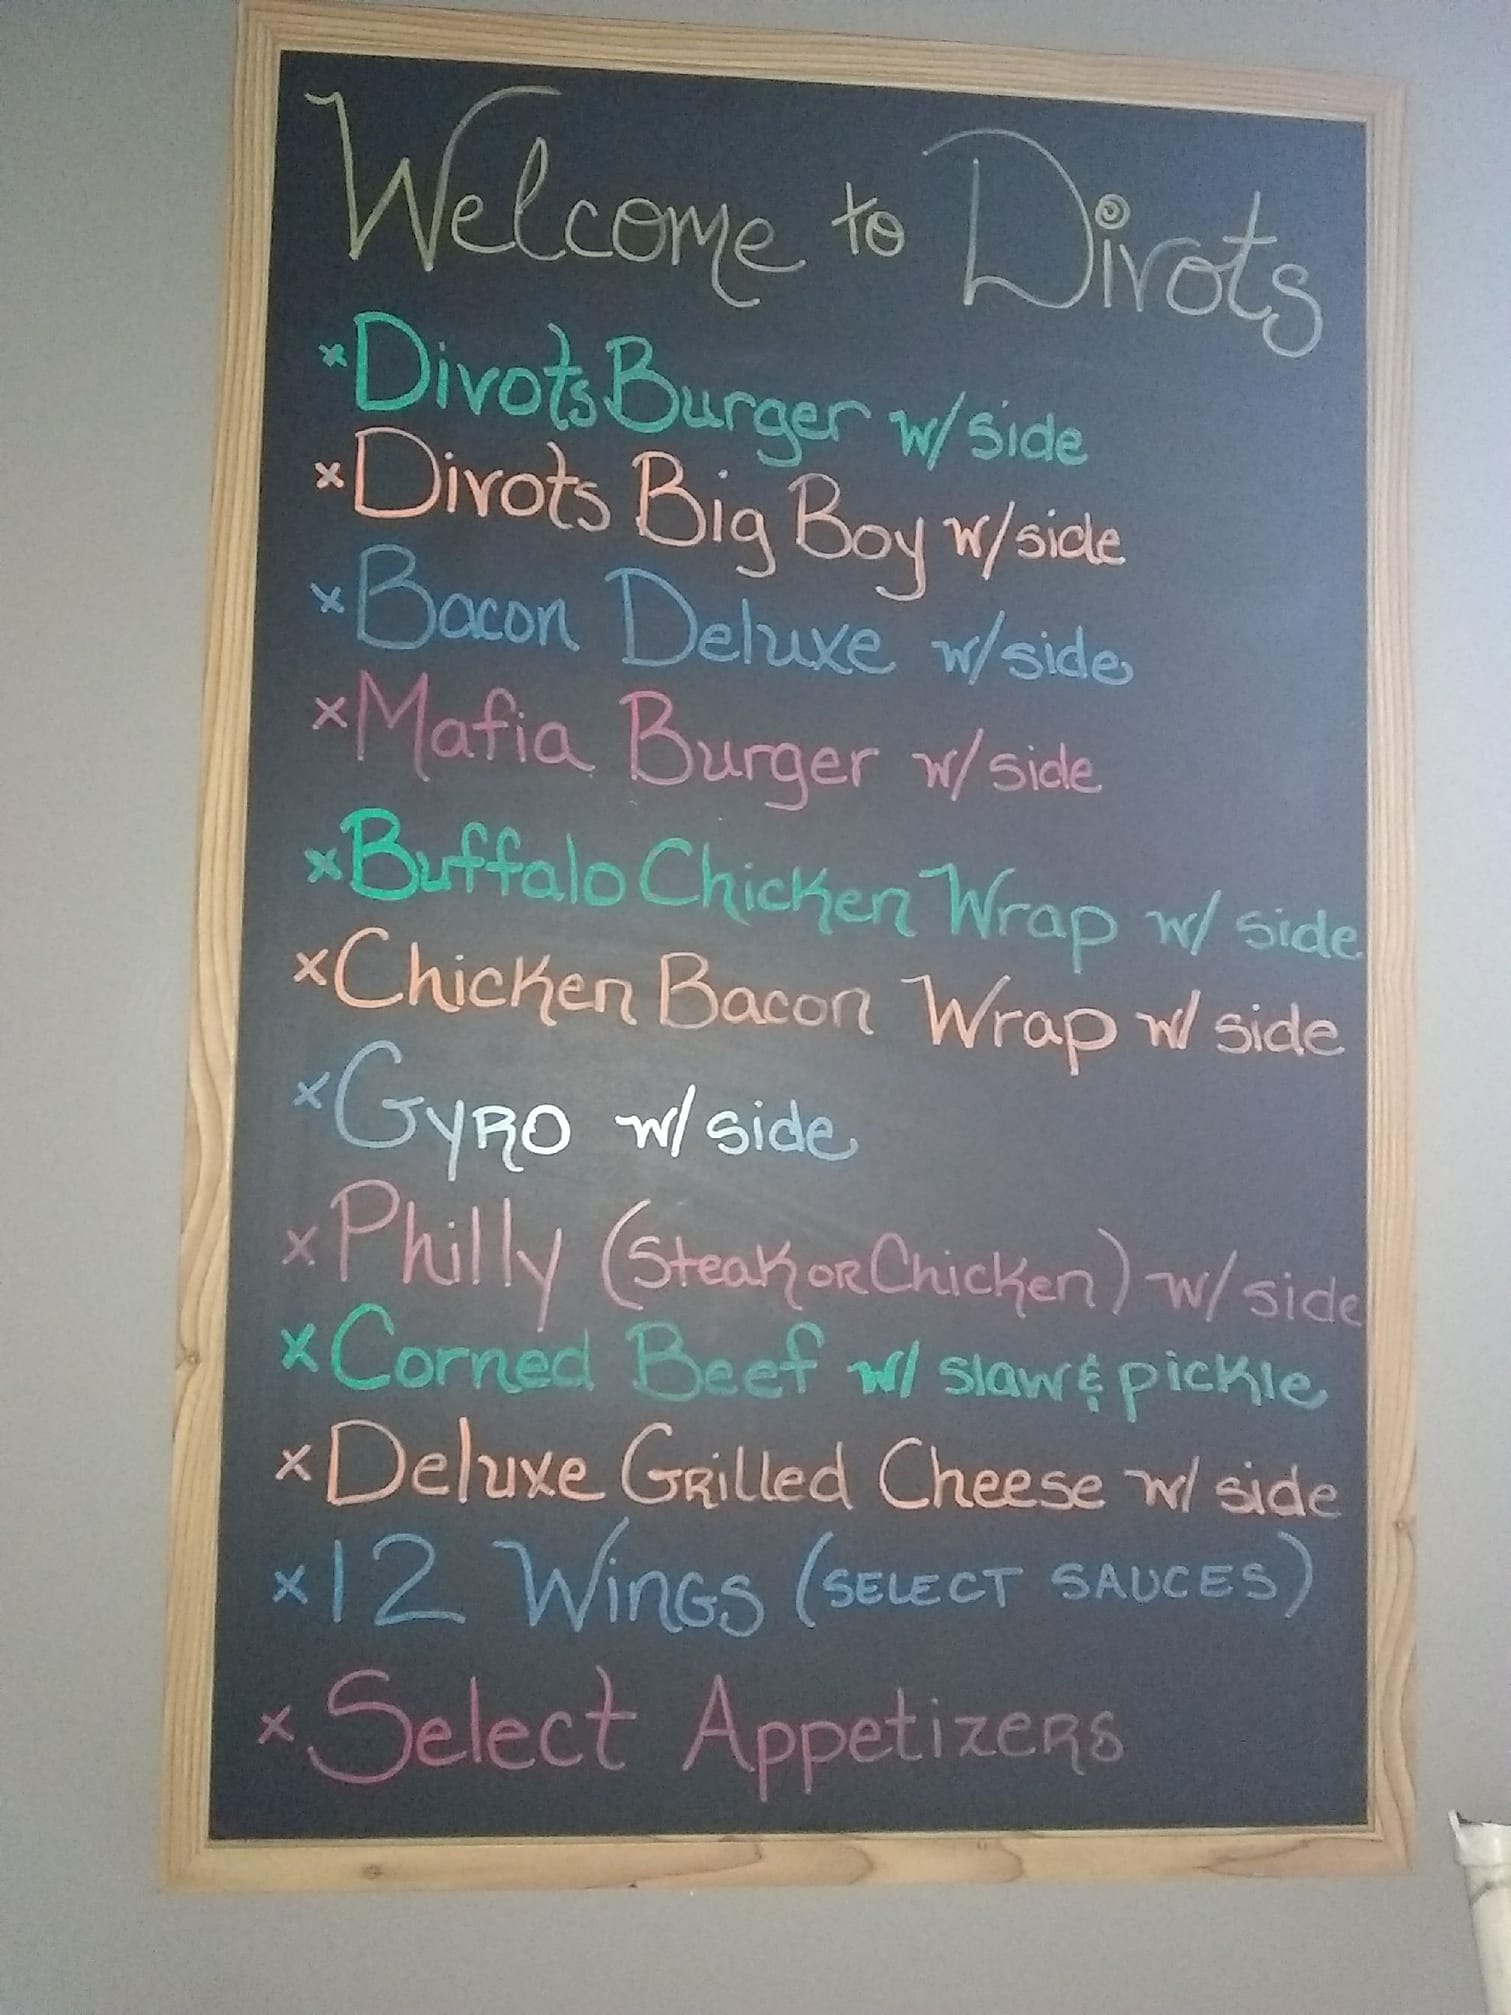 Welcome to Divots
x Divots Burger w/ side
x Divots Big Boy w/ side
x Bacon Deluxe w/ side
x Mafia Burger w/ side
x Buffalo Chicken Wrap w/ side
x Chicken Bacon Wrap w/ side
x GyRO w/ side
x Philly (Steak OR Chicken) w/ side
x Corned Beef w/ slaw & pickle
x Deluxe GRilled Cheese w/ side
x 12 WinGs (SELECT SAUCES)
x Select AppetizeRs